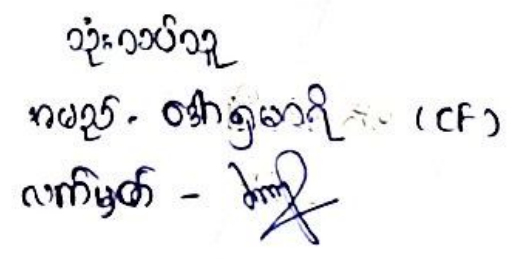 သုံးသပ်သူ
အမည် - ဒေါ်ရွှေဟာရီ (CF)
လက်မှတ် -